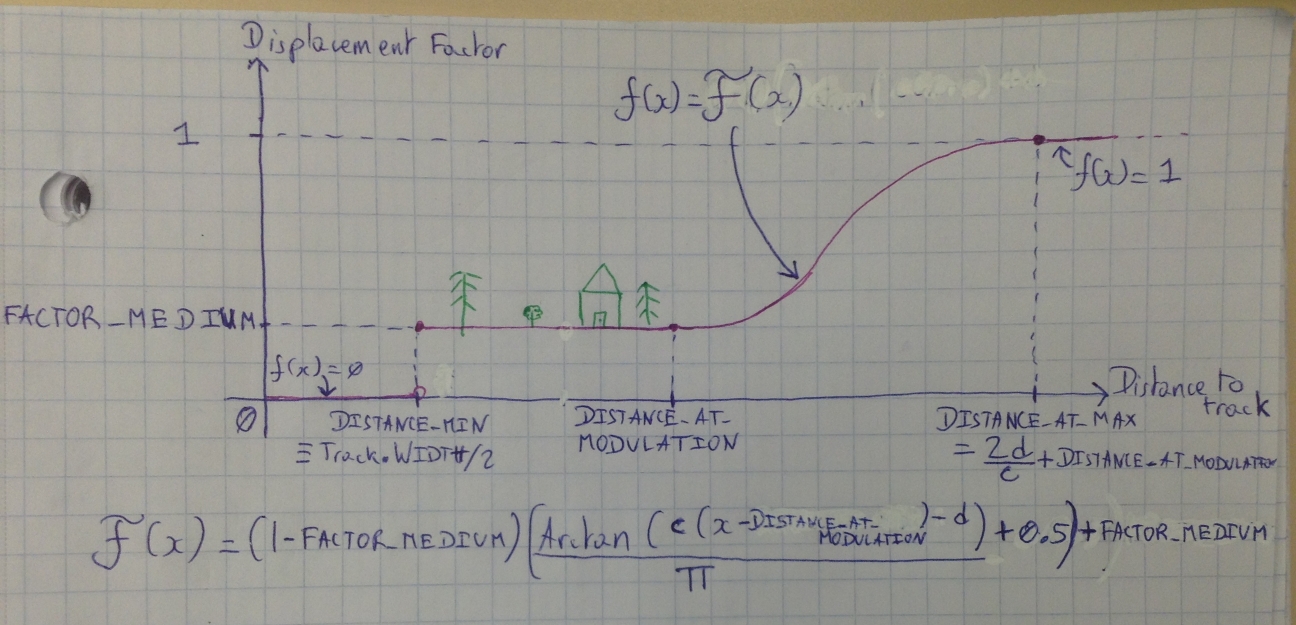 Displacement Factor
f(x) = F̃(x)
1
f(x) = 1
FACTOR_MEDIUM
f(x) = 0
0
Distance to
track
DISTANCE_MIN
≡ Track.WIDTH/2
DISTANCE_AT_
MODULATION
DISTANCE_AT_MAX
= 2d/c + DISTANCE_AT_MODULATION
F̃(x) = (1-FACTOR_MEDIUM) (Arctan (c (x-DISTANCE_AT_MODULATION) - d) / π + 0.5) + FACTOR_MEDIUM